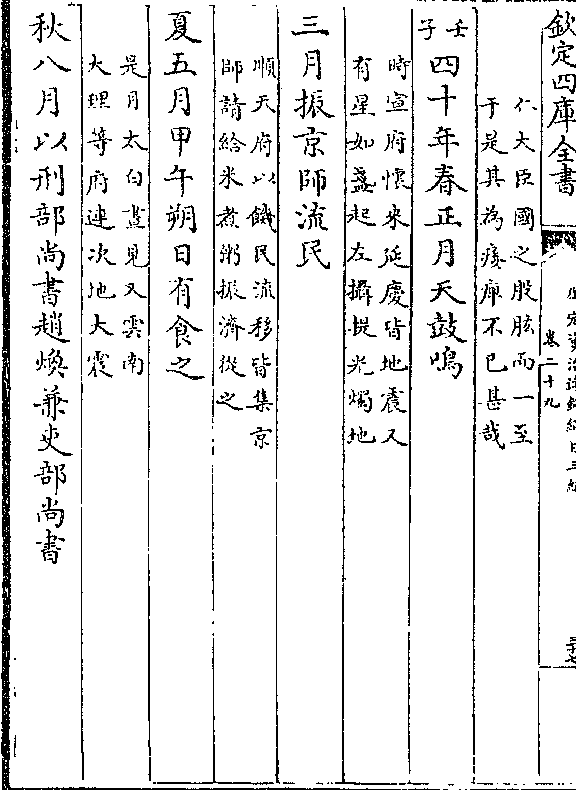 欽定四庫全書
御定資治通鑑綱目三編
卷二十九
仁大臣國之股肱而一至
于是其為痿痺不已甚哉
壬子
四十年春正月天鼓鳴
時宣府懷來延慶皆地震又
有星如盞起左攝提光燭地
三月振京師流民
順天府以饑民流移皆集京
師請給米煮粥振濟從之
夏五月甲午朔日有食之
是月太白晝見又雲南
大理等府連次地大震
秋八月以刑部尚書趙煥兼吏部尚書